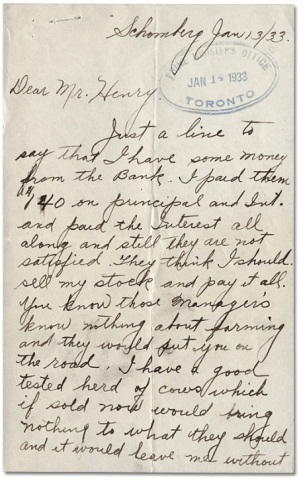 Schomberg Jan 13/33.
PRIME MINISTER'S OFFICE
JAN 14 1933
TORONTO
Dear Mr. Henry.
Just a line to
say that I have some money
from the Bank. I paid them
140 on principal and Int.
and paid the interest all
along and still they are not
satisfied. They think I should
sell my stock and pay it all.
You know those Manager's
know nothing about farming
and they would put you on
the road. I have a good
tested herd of cows which
if sold now would bring
nothing to what they should
and it would leave me without